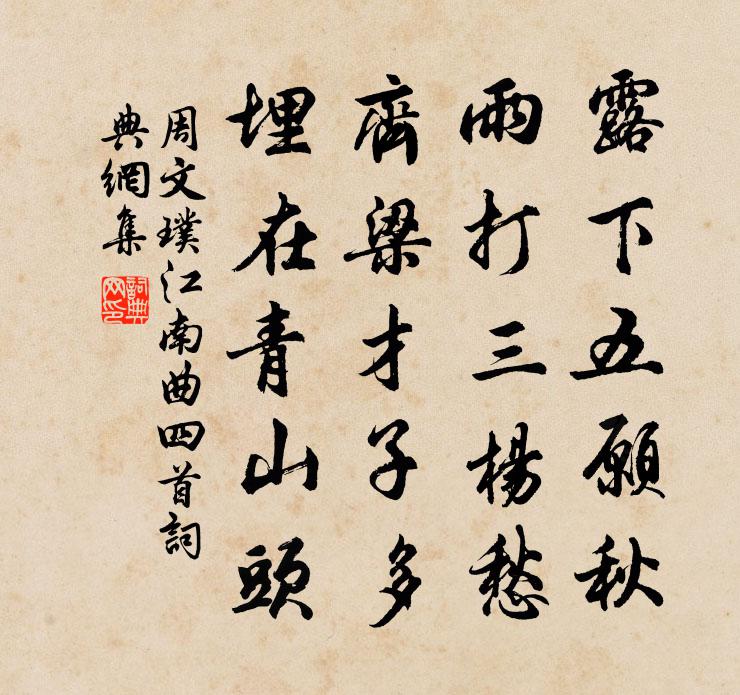 露下五願秋
雨打三楊愁
齊梁才子多
埋在青山頭
周文璞江南曲四首詞
典網集
詞典
网印